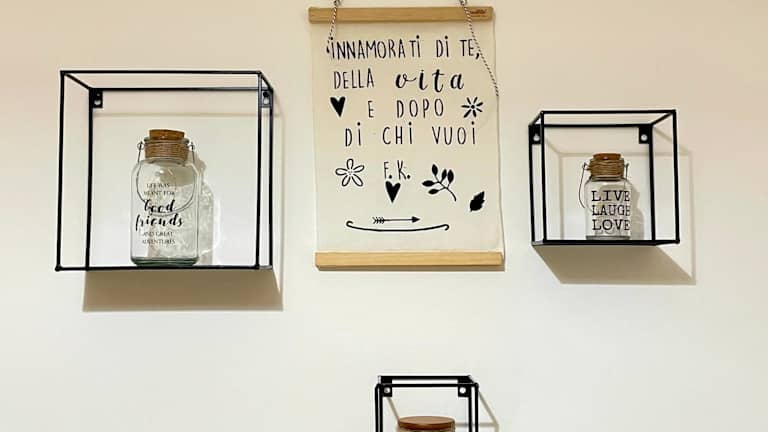 INNAMORATI DI TE,
DELLA vita
E DOPO
DI CHI VUOI
F.K.
LIFE WAS
MEANT FOR
Good
friends
AND GREAT
ADVENTURES
LIVE
LAUGH
LOVE